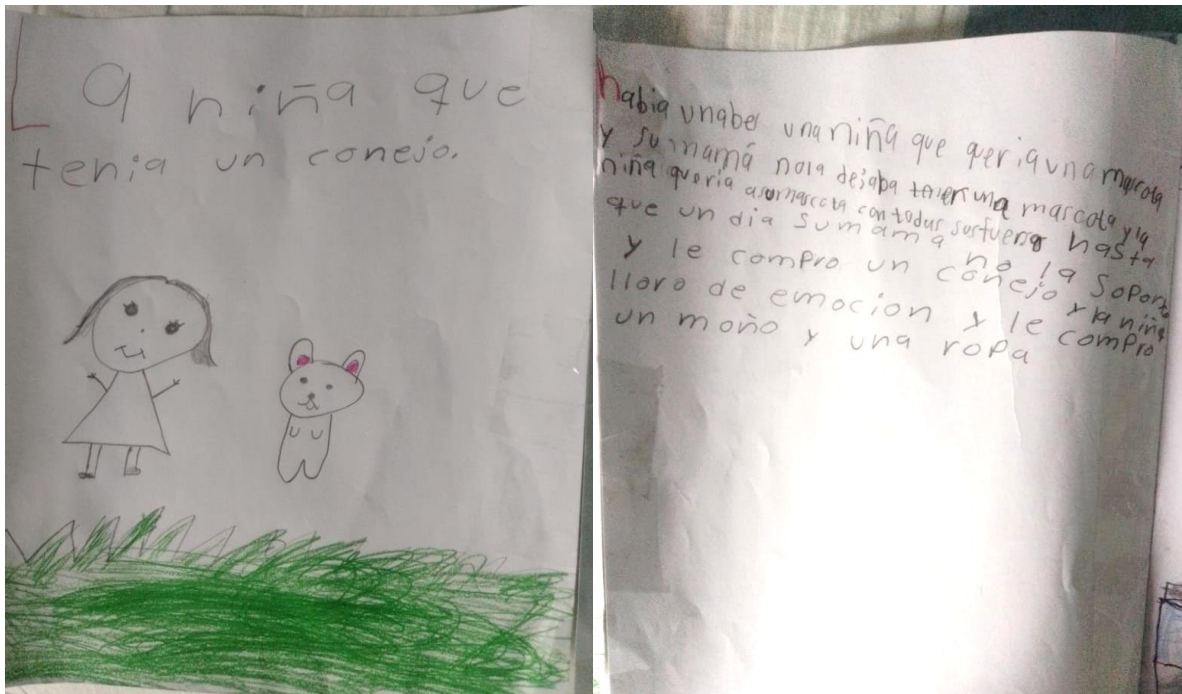 La niña que
tenia un conejo.
habia unabes una niña que queria una mascota
y su mamá nola dejaba tener una mascota y la
niña queria asumascota con todas susfuersa hasta
que un dia sumama no la soporto
y le compro un conejo y la niña
lloro de emocion y le compro
un moño y una ropa